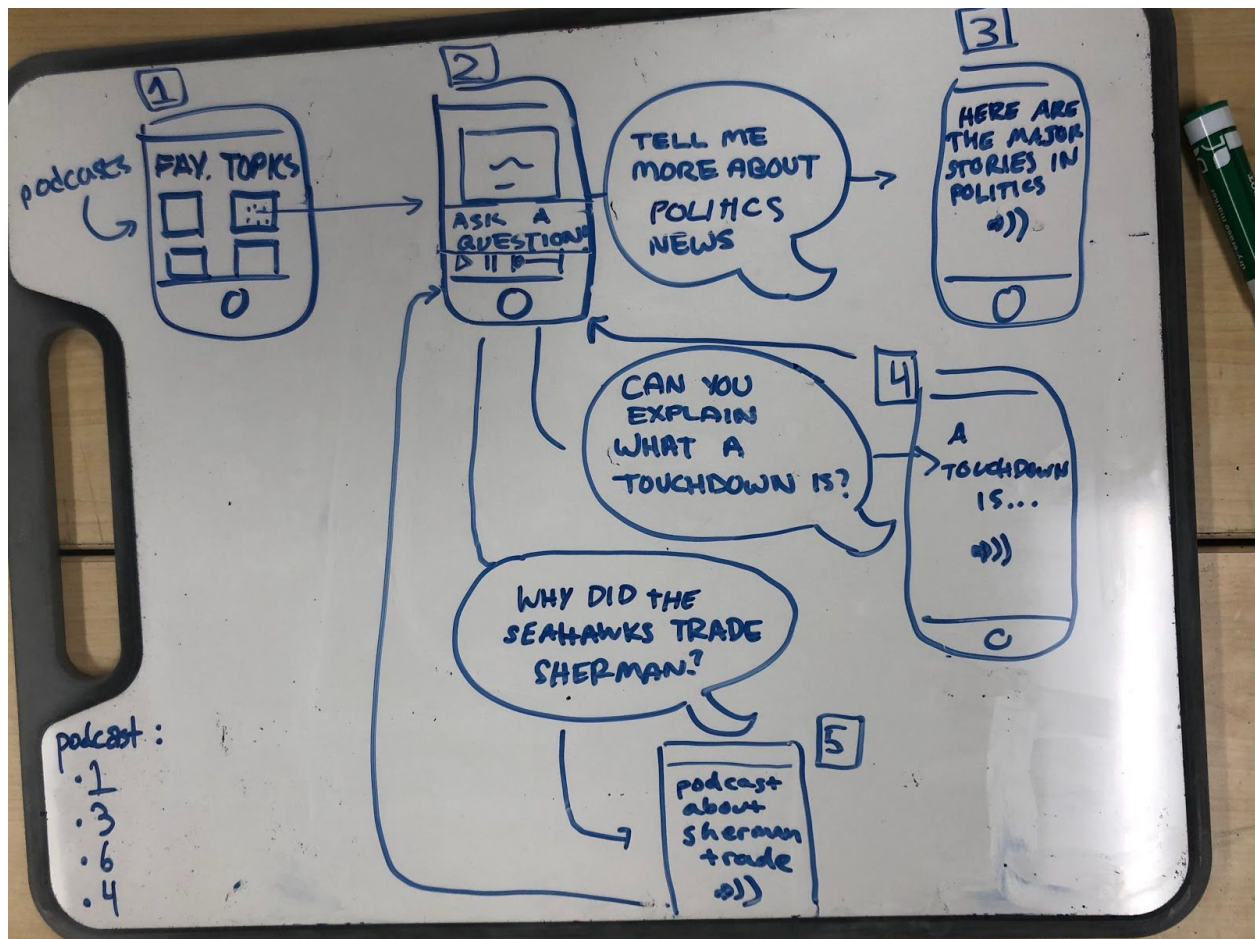 1
podcasts
FAV. TOPICS
2
ASK A
QUESTION
TELL ME
MORE ABOUT
POLITICS
NEWS
3
HERE ARE
THE MAJOR
STORIES IN
POLITICS
CAN YOU
EXPLAIN
WHAT A
TOUCHDOWN IS?
4
A
TOUCHDOWN
IS...
WHY DID THE
SEAHAWKS TRADE
SHERMAN?
5
podcast
about
sherman
trade
podcast:
• 1
• 3
• 6
• 4